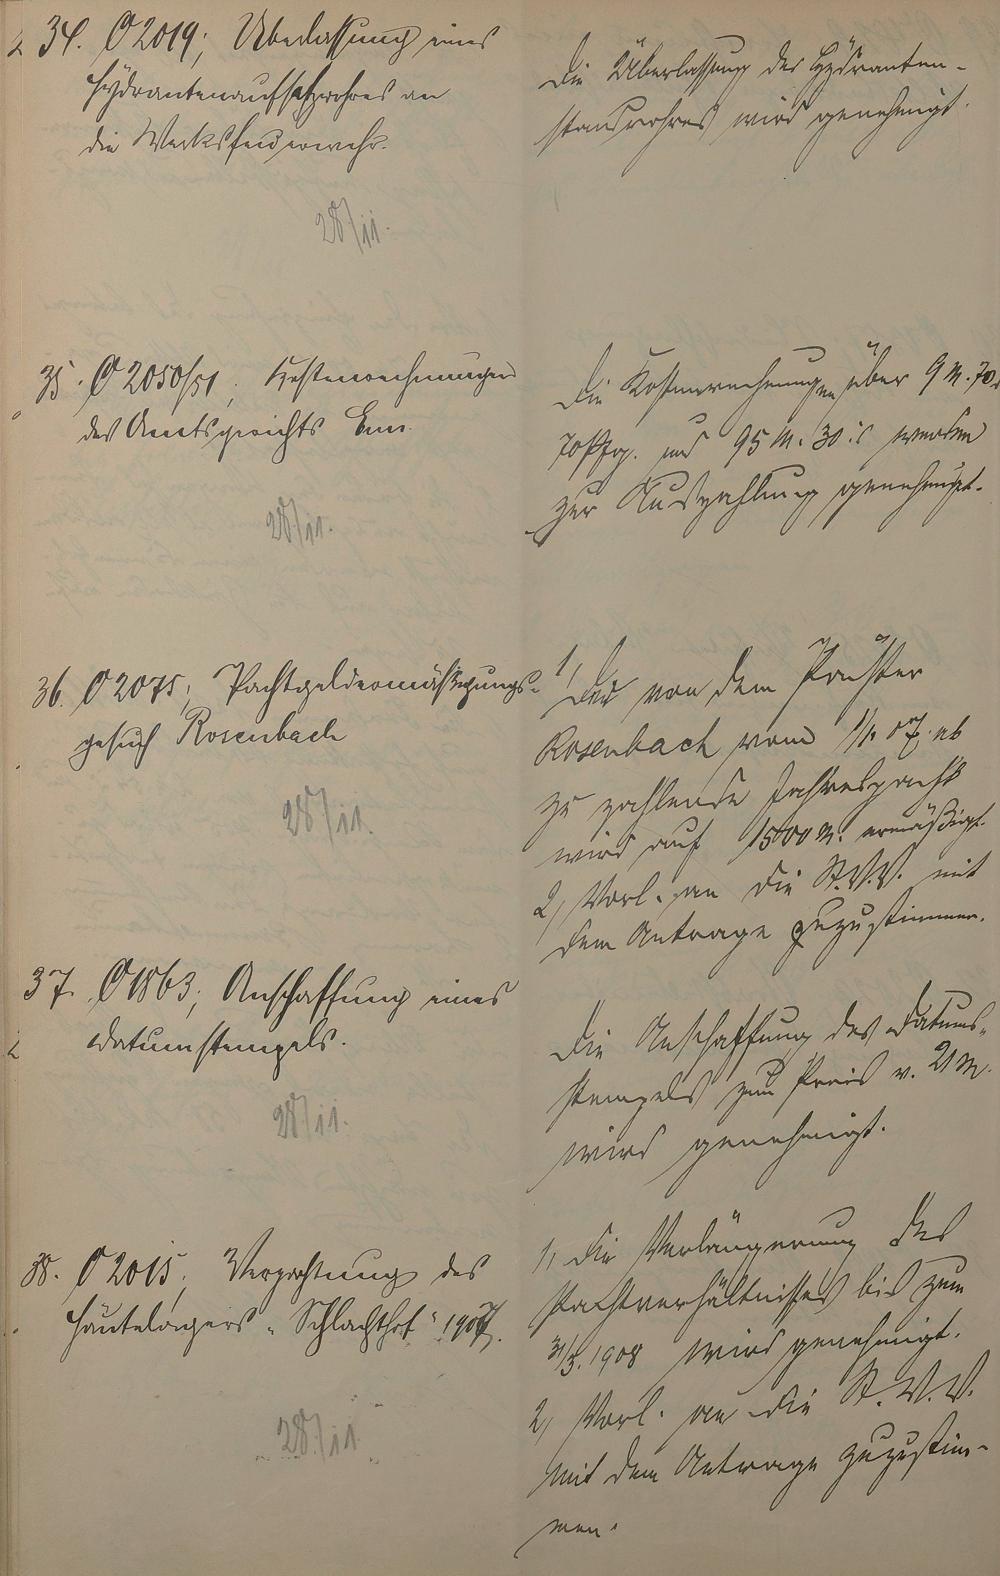 34. O 2019; Überlassung eines
Hydrantenaufsatzrohres an
die Werksfeuerwehr.
28/11.
Die Überlassung des Hydranten-
standrohres wird genehmigt.
35. O 2050/51; Kostenrechnungen
des Amtsgerichts
28/11.
Die Kostenrechnungen über 9 M. 70
70 Pfg. und 95 M. 30 werden
zur Auszahlung genehmigt.
36. O 2075; Pachtgeldermäßigungs-
gesuch Rosenbach
28/11.
1, Die von dem Pächter
Rosenbach vom 1/1. 07. ab
zu zahlende Jahrespacht
wird auf 1500 M. ermäßigt.
2, Vorl. an die St.V.V. mit
dem Antrage zuzustimmen.
37. O 1863; Anschaffung eines
Datumstempels.
28/11.
Die Anschaffung des Datums-
stempels zum Preis v. 21 M.
wird genehmigt.
38. O 2015; Verpachtung des
Häutelagers "Schlachthof" 1907.
28/11
1, Die Verlängerung des
Pachtverhältnisses bis zum
31/3. 1908 wird genehmigt.
2, Vorl. an die St.V.V.
mit dem Antrage zuzustim-
men.